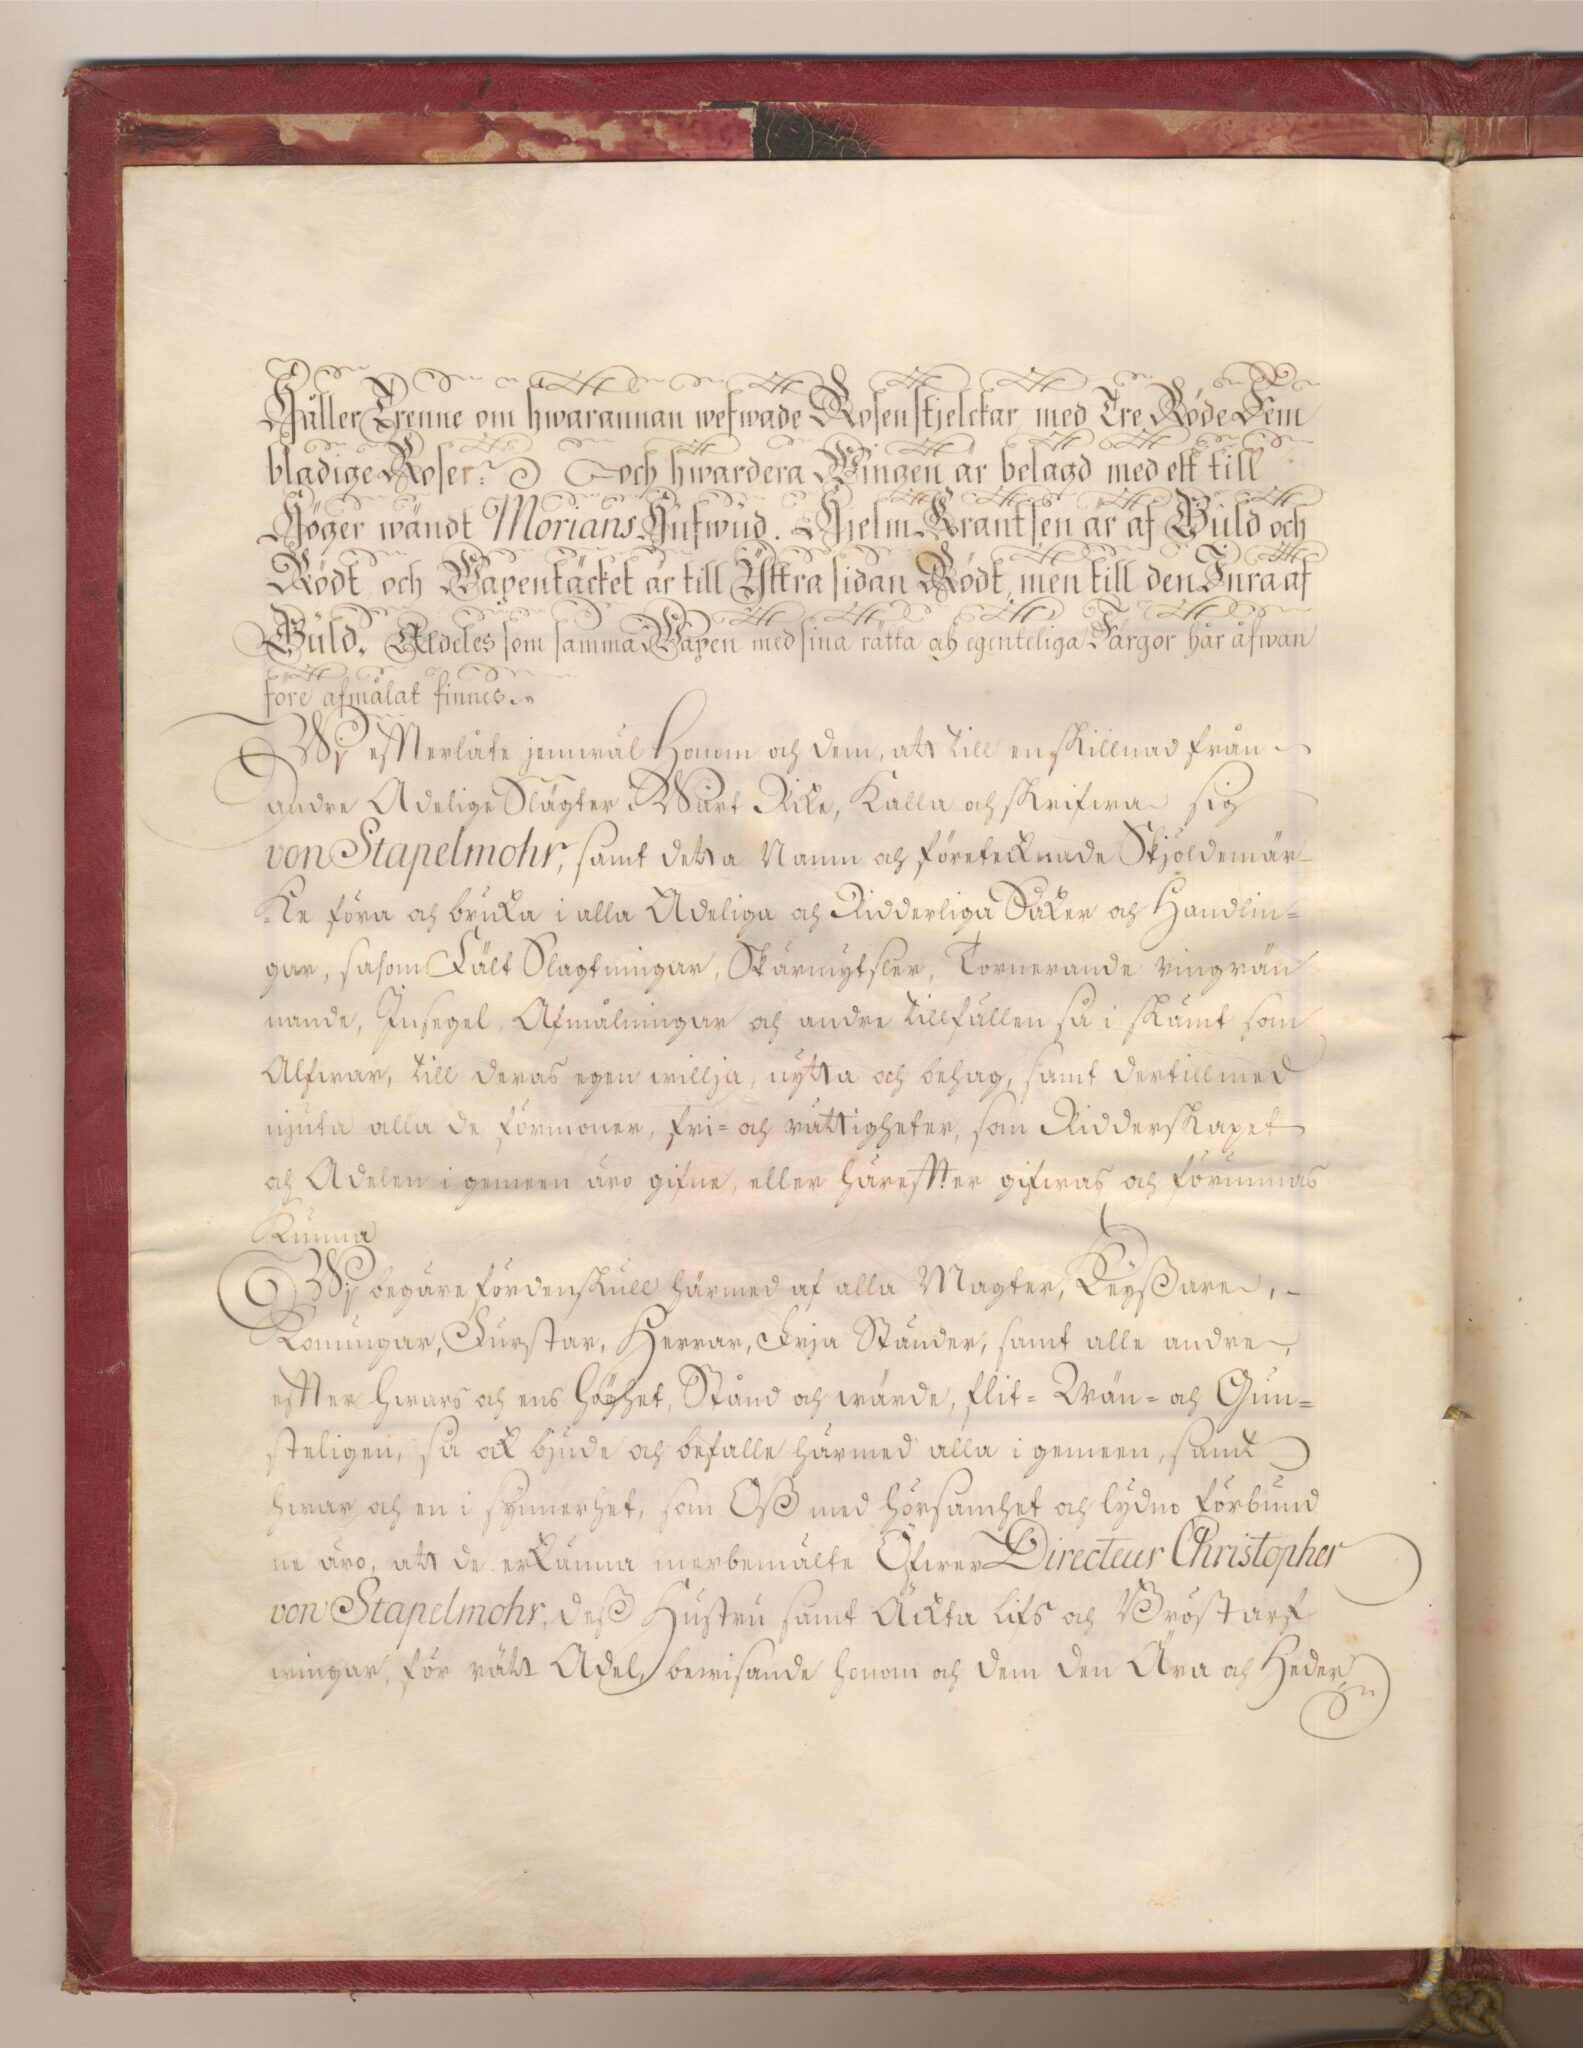 Håller Trenne om hwarannan wefwade Rosenstjelckar med Tre Röde Fem
bladige Roser: och hwardera Wingen är belagd med ett till
Höger wändt Morians Hufwud. Hjelm Krantsen är af Guld och
Rödt och Wapentäcket är till Yttra sidan Rödt, men till den Inra af
Guld. Aldeles som samma Wapen med sina rätta och egenteliga Färgor här åfwan
före afmålat finnes.
Wj effterlåte jemwäl Honom och dem, att till en skillnad från
andre Adelige Slägter i Wårt Rike, Kalla och skrifwa sig
von Stapelmohr, samt detta Namn och företecknade Skjöldemär-
ke föra och bruka i alla Adeliga och Ridderliga Saker och Handlin=
gar, såsom Fält Slagtningar, Skärmytsler, Tornerande ringrän
nande, Insegel, Afmålningar och andre tillfällen så i skämt som
Alfwar, till deras egen willja, nytta och behag, samt dertillmed
njuta alla de förmoner, fri= och rättigheter, som Ridderskapet
och Adelen i gemeen äro gifne, eller häreffter gifwas och förunnas
Kunna
Wj begäre fördenskull härmed af alla Magter, Keyßare,
Konungar, Furstar, Herrar, Frja Ständer, samt alle andre,
effter hwars och ens höghet, Stånd och wärde, flit= Wän= och Gun=
steligen, så ock bjude och befalle härmed alla i gemeen, samt
hwar och en i synnerhet, som Oß med hörsamhet och lydno förbund
ne äro, att de erkänna merbemälte Öfwer Directeur Christopher
von Stapelmohr, deß Hustru samt Äckta lifs och Bröstarf
wingar, för rätt Adel, bewisande honom och dem den Ära och Heder